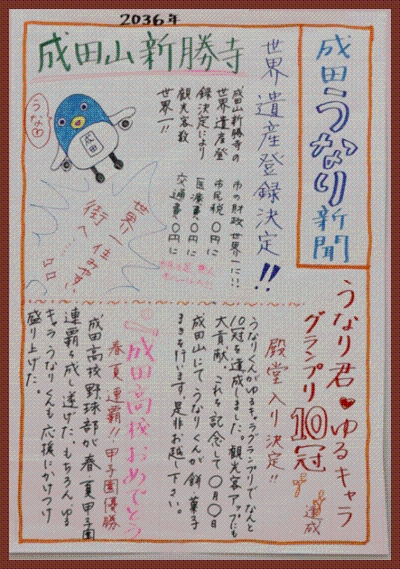 2036年
成田うなり新聞
成田山新勝寺
世界遺産登録決定!!
成田山新勝寺の
世界遺産登
録決定により
観光客数
世界一!!
市の財政世界一に!!
市民税〇円に
医療費〇円に
交通費〇円に
うな♡
成田
世界一住みやすい
街へ……
うなり君♥ゆるキャラ
グランプリ10冠達成
殿堂入り決定!!
うなりくんがゆるキャラグランプリでなんと
10冠を達成しました。観光客アップにも
大貢献。これを記念して〇月〇日
成田山にて、うなりくんが餅、菓子
まきを行います。是非お越し下さい。
成田高校おめでとう
春夏連覇!!甲子園優勝
成田高校野球部が春夏甲子園
連覇を成し遂げた。もちろんゆる
キャラうなりくんも応援にかけつけ
盛り上げた。